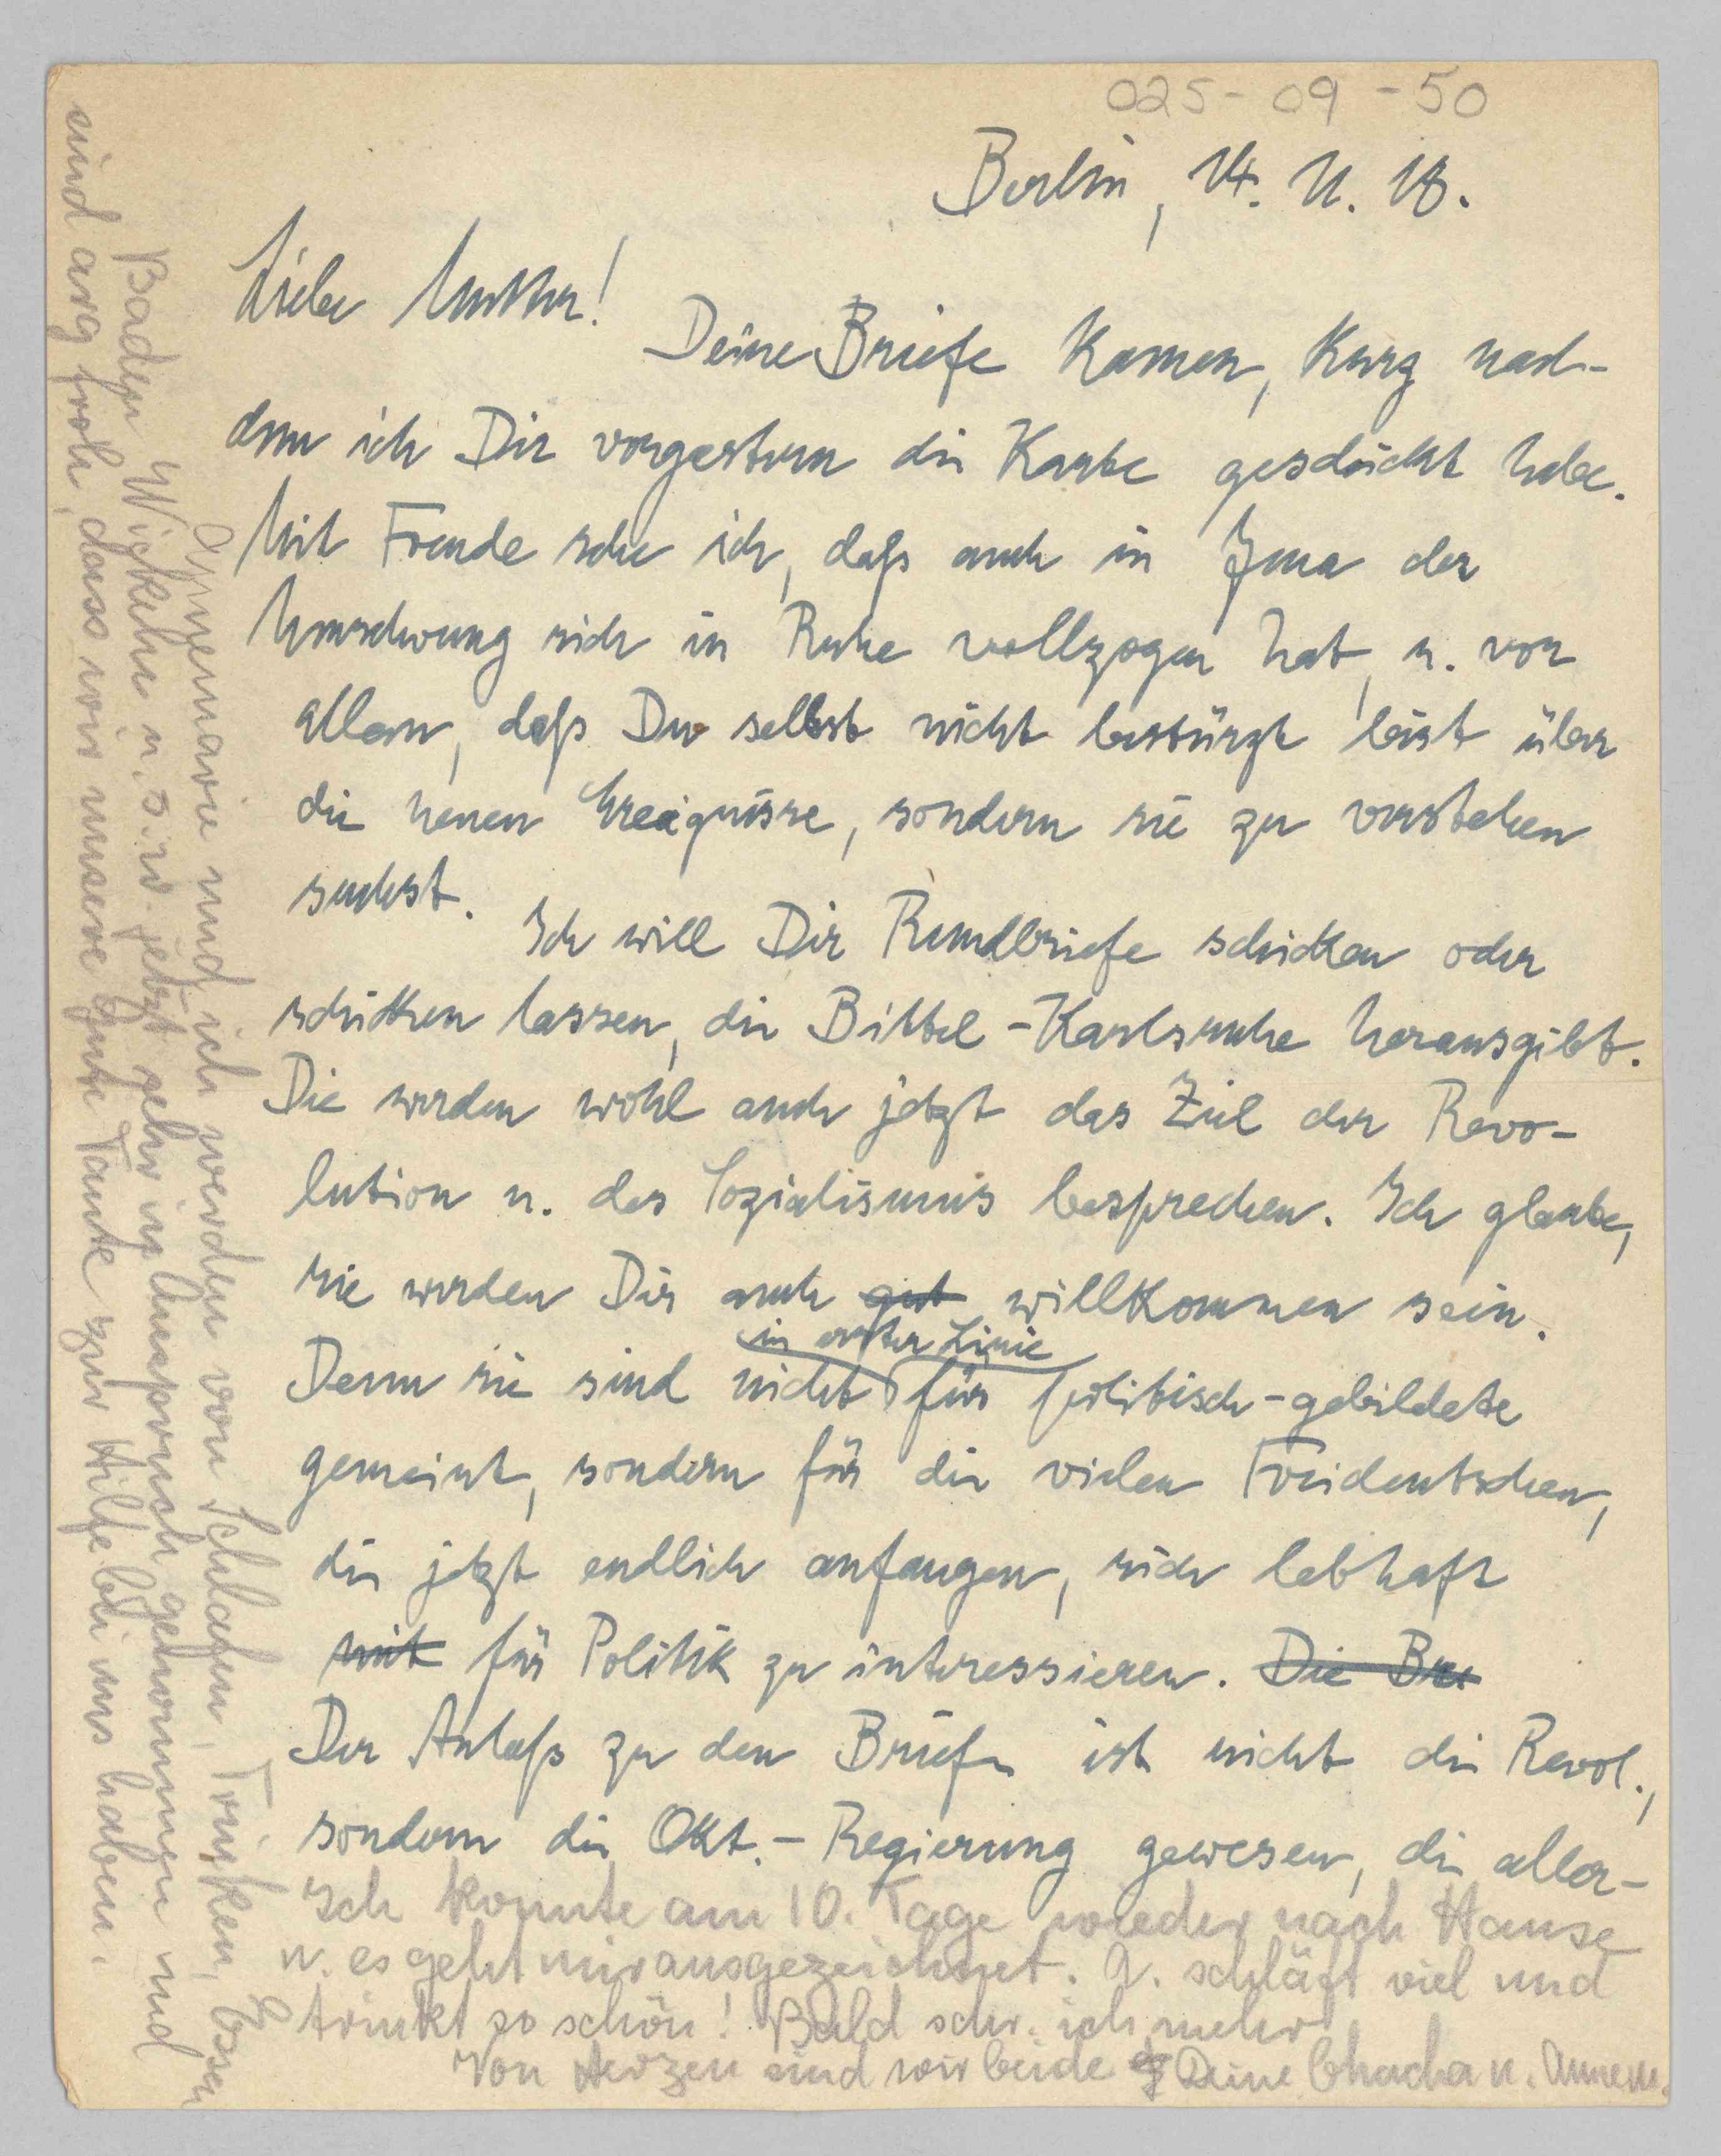 025-09-50
Berlin, 14. 11. 18.
Liebe Mutter!
Deine Briefe kamen, kurz nach-
dem ich Dir vorgestern die Karte geschickt habe.
Mit Freude sehe ich, daß auch in Jena der
Umschwung sich in Ruhe vollzogen hat, u. vor
allem, daß Du selbst nicht bestürzt bist über
die neuen Ereignisse, sondern sie zu verstehen
suchst. Ich will Dir Rundbriefe schicken oder
schicken lassen, die Bittel-Karlsruhe herausgibt.
Die werden wohl auch jetzt das Ziel der Revo-
lution u. des Sozialismus besprechen. Ich glaube,
sie werden Dir auch gut willkommen sein.
in erster Linie
Denn sie sind nicht für politisch-gebildete
gemeint, sondern für die vielen Freideutschen,
die jetzt endlich anfangen, sich lebhaft
mit für Politik zu interessieren. Die Bri
Der Anlaß zu den Briefen ist nicht die Revol.,
sondern die Okt.-Regierung gewesen, die aller-
Ich konnte am 10. Tage wieder nach Hause
u. es geht mir ausgezeichnet. A. schläft viel und
trinkt so schön! Bald schr. ich mehr
Von Herzen sind wir beide Deine Chacha u. Annem.
Annemarie und ich werden von Schlafen, Trinken, Essen
Baden, Wickeln u.s.w. jetzt sehr in Anspruch genommen und
sind arg froh, dass wir unsere gute Tante zur Hilfe bei uns haben.